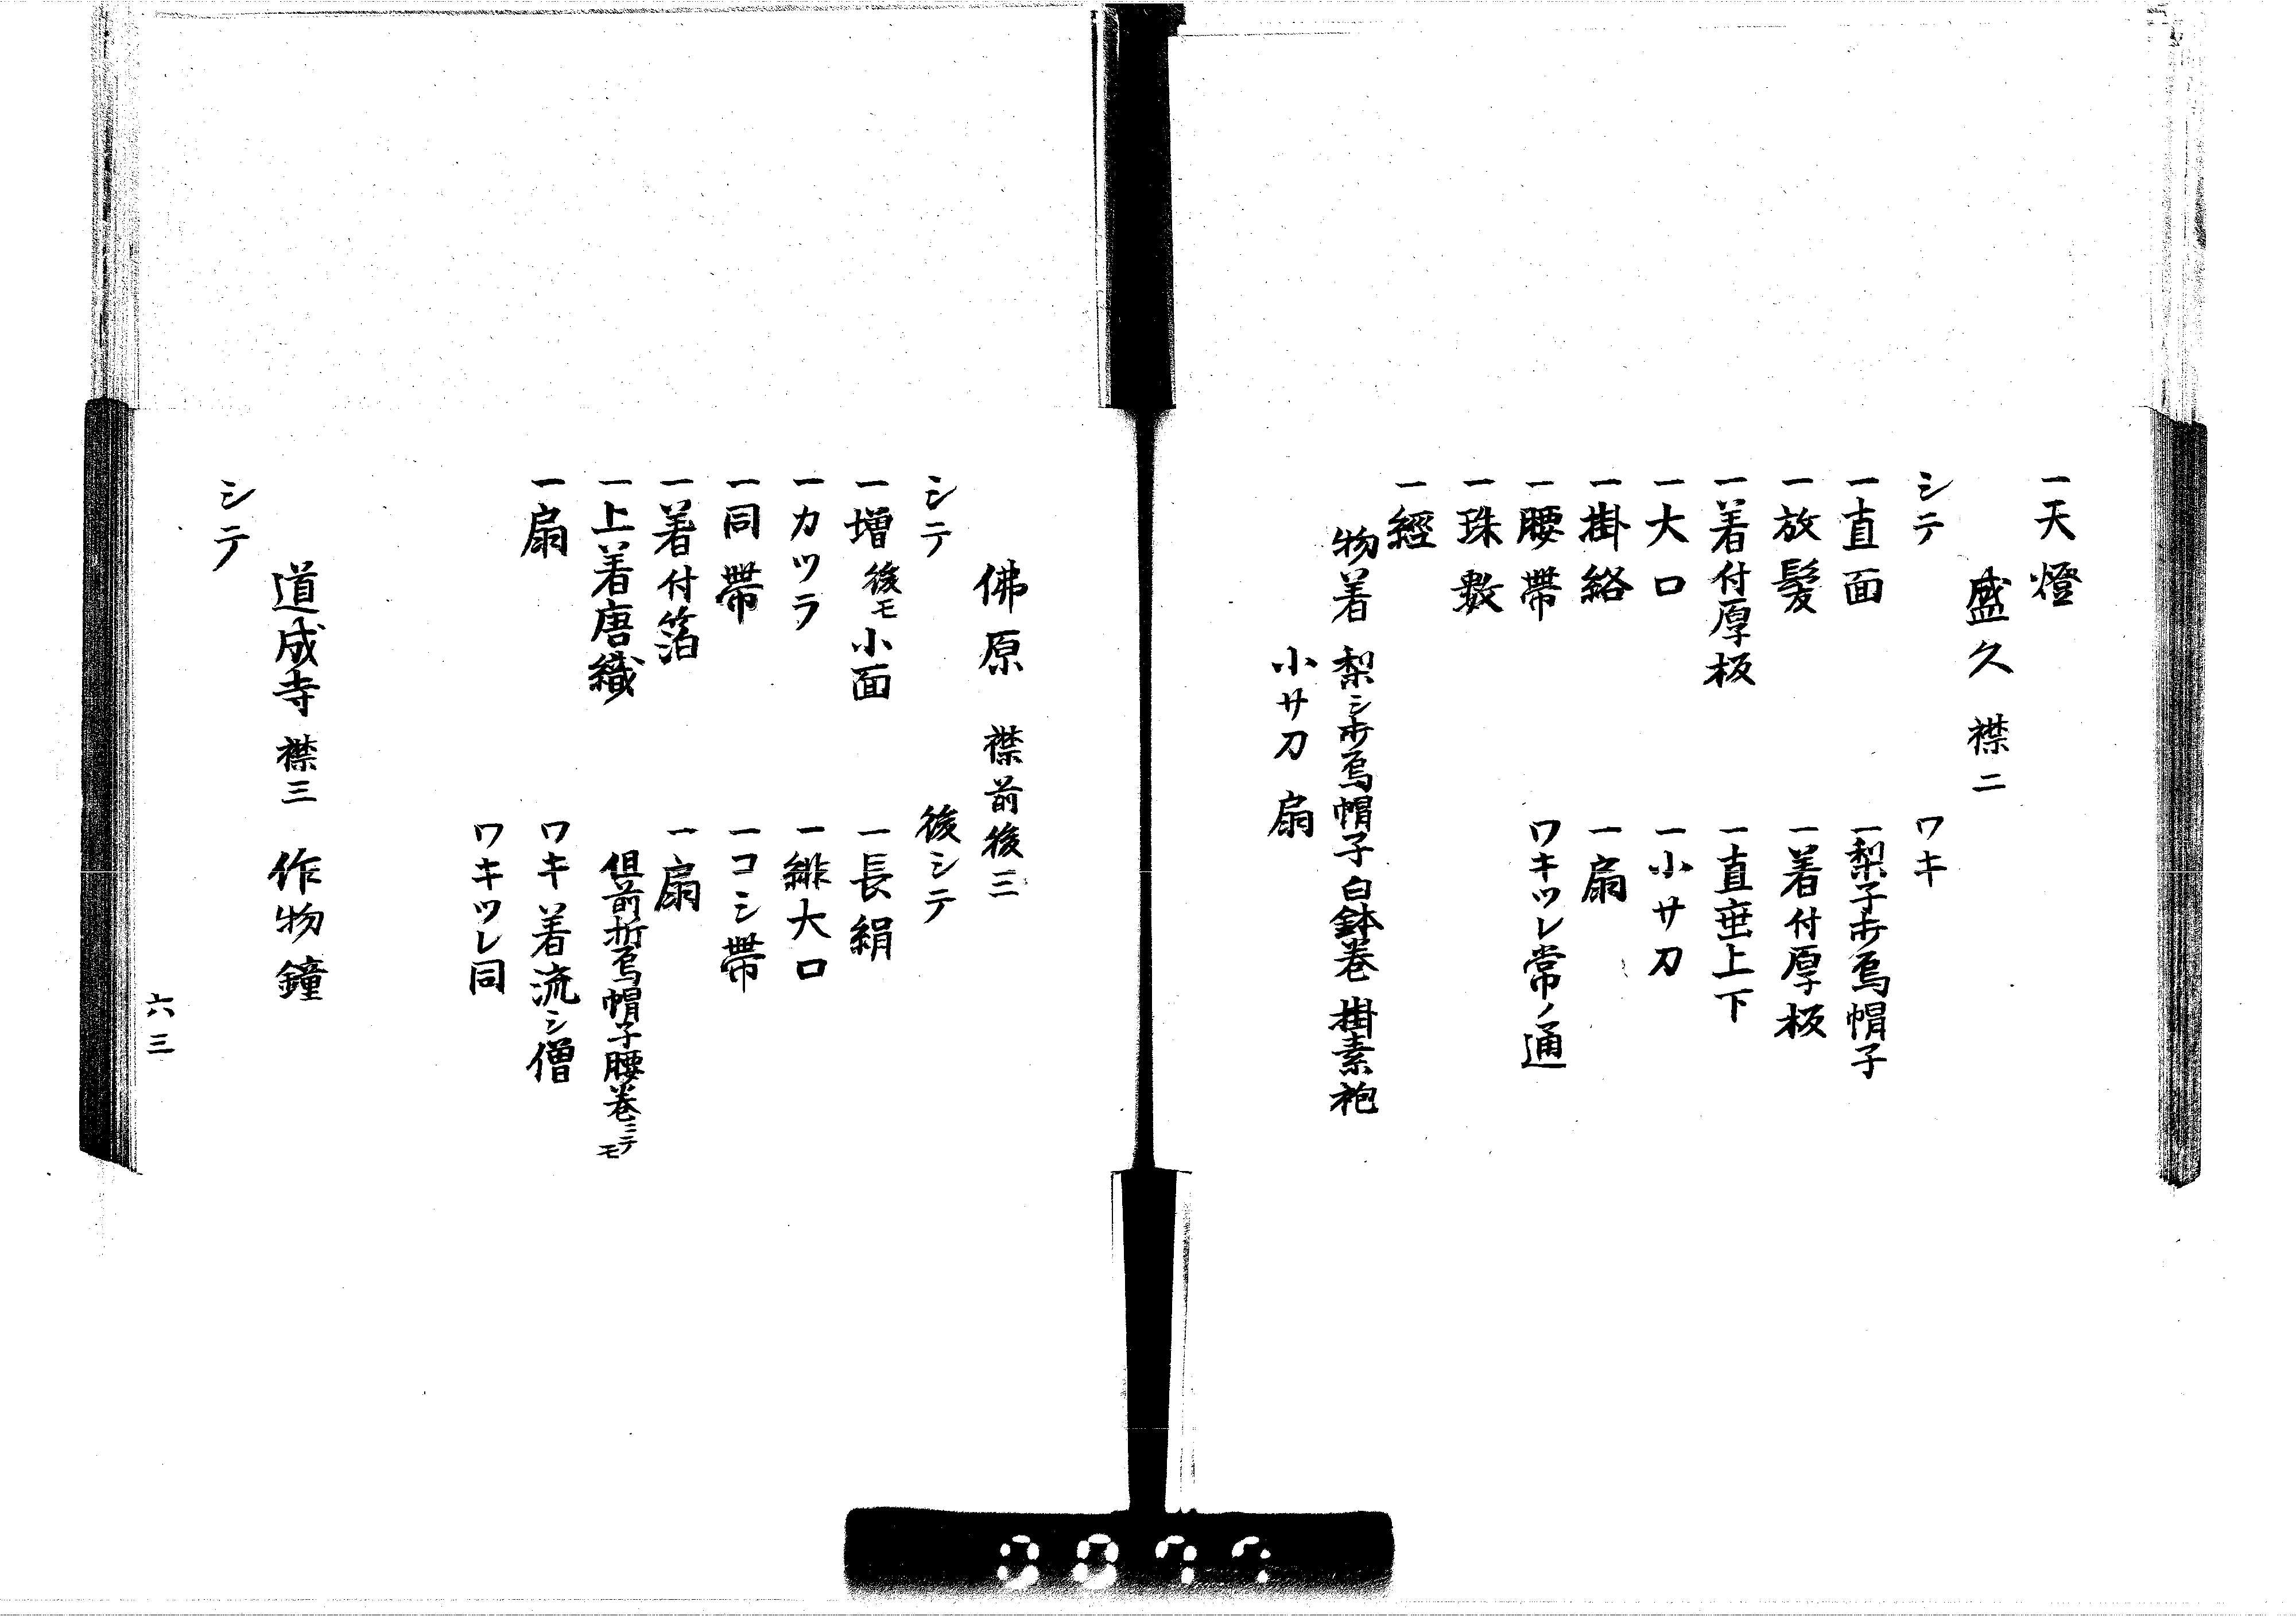 一天燈
盛久 襟二
シテ
ワキ
一直面
一梨子ホウ烏帽子
一放髪
一着付厚板
一着付厚板
一直垂上下
一大口
一小サ刀
一掛絡
一扇
一腰帶
ワキツレ常ノ通
一珠数
一經
物着 梨シホウ烏帽子白鉢巻 掛素袍
小サ刀 扇
佛原 襟前後三
シテ
後シテ
一増 後モ小面
一長絹
一カツラ
一緋大口
一同帶
一コシ帶
一着付箔
一扇
一上着唐織
但前折烏帽子腰巻ニテモ
一扇
ワキ着流シ僧
ワキツレ同
道成寺 襟三 作物鐘
シテ
六三